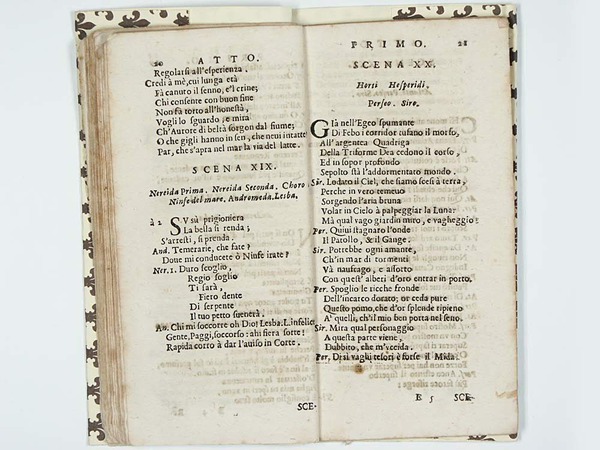 20 ATTO.
Regolarsi all'esperienza.
Credi à mè, cui lunga età
Fà canuto il senno, e'l crine;
Chi consente con buon fine
Non fà torto all'honestà,
Vogli lo sguardo, e mira
Ch'Autore di beltà sorgon dal fiume;
O che gigli hanno in sen, che neui intatte
Par, che s'apra nel mar la via del latte.
SCENA XIX.
Nereida Prima. Nereida Seconda. Choro
Ninfe del mare. Andromeda. Lesba.
à 2 SV sù prigioniera
La bella si renda;
S'arresti, si prenda.
And. Temerarie, che fate?
Doue mi conducete ò Ninfe irate?
Ner. 1. Duro scoglio,
Regio soglio
Ti sarà,
Fiero dente
Di serpente
Il tuo petto suenerà.
An. Chi mi soccorre oh Dio! Lesba. L'infelice
Gente, Paggi, soccorso: ahi fiera sorte!
Rapida corro à dar l'auiso in Corte.
SCE-
PRIMO. 21
SCENA XX.
Horti Hesperidi.
Perseo. Siro.
GIà nell'Egeo spumante
Di Febo i corridor tufano il morso,
All'argentea Quadriga
Della Triforme Dea cedono il corso,
Ed in sopor profondo
Sepolto stà l'addormentato mondo.
Sir. Lodato il Ciel, che siamo scesi à terra,
Perche in vero temeuo
Sorgendo l'aria bruna
Volar in Cielo à palpeggiar la Luna:
Mà qual vago giardin miro, e vagheggio?
Per. Quiui stagnaro l'onde
Il Pattollo, & il Gange.
Sir. Potrebbe ogni amante,
Ch'in mar di tormenti
Và naufrago, e assorto
Con quest' alberi d'oro entrar in porto.
Per. Spoglio le ricche fronde
Dell'incanto dorato; ne ceda pure
Questo pomo, che d'or splende ripieno
A' quelli, ch'il mio ben porta nel seno.
Sir. Mira qual personaggio
A questa parte viene,
Dubbito, che m'vccida.
Per. Di sì vaghi tesori è forse il Mida.
E 5 SCE-